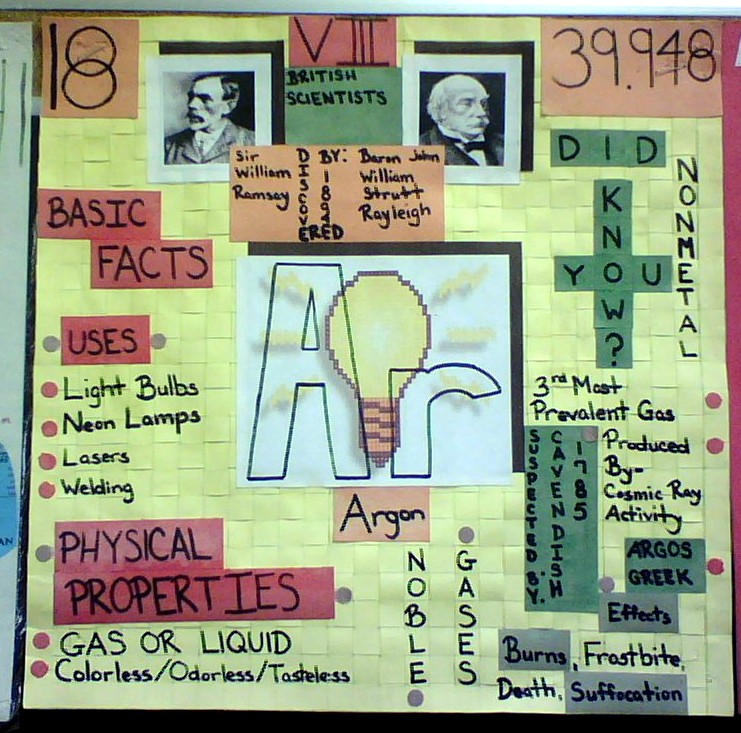 18
VIII
39.948
BRITISH
SCIENTISTS
Sir
William
Ramsay
DISCOVERED
BY:
Baron John
William
Strutt
Rayleigh
DID
KNOW?
YOU
NONMETAL
BASIC
FACTS
USES
Light Bulbs
Neon Lamps
Lasers
Welding
Ar
Argon
3rd Most
Prevalent Gas
Produced
By-
Cosmic Ray
Activity
SUSPECTED BY:
CAVENDISH
1785
ARGOS
GREEK
PHYSICAL
PROPERTIES
GAS OR LIQUID
Colorless/Odorless/Tasteless
NOBLE
GASES
Effects
Burns, Frostbite,
Death, Suffocation